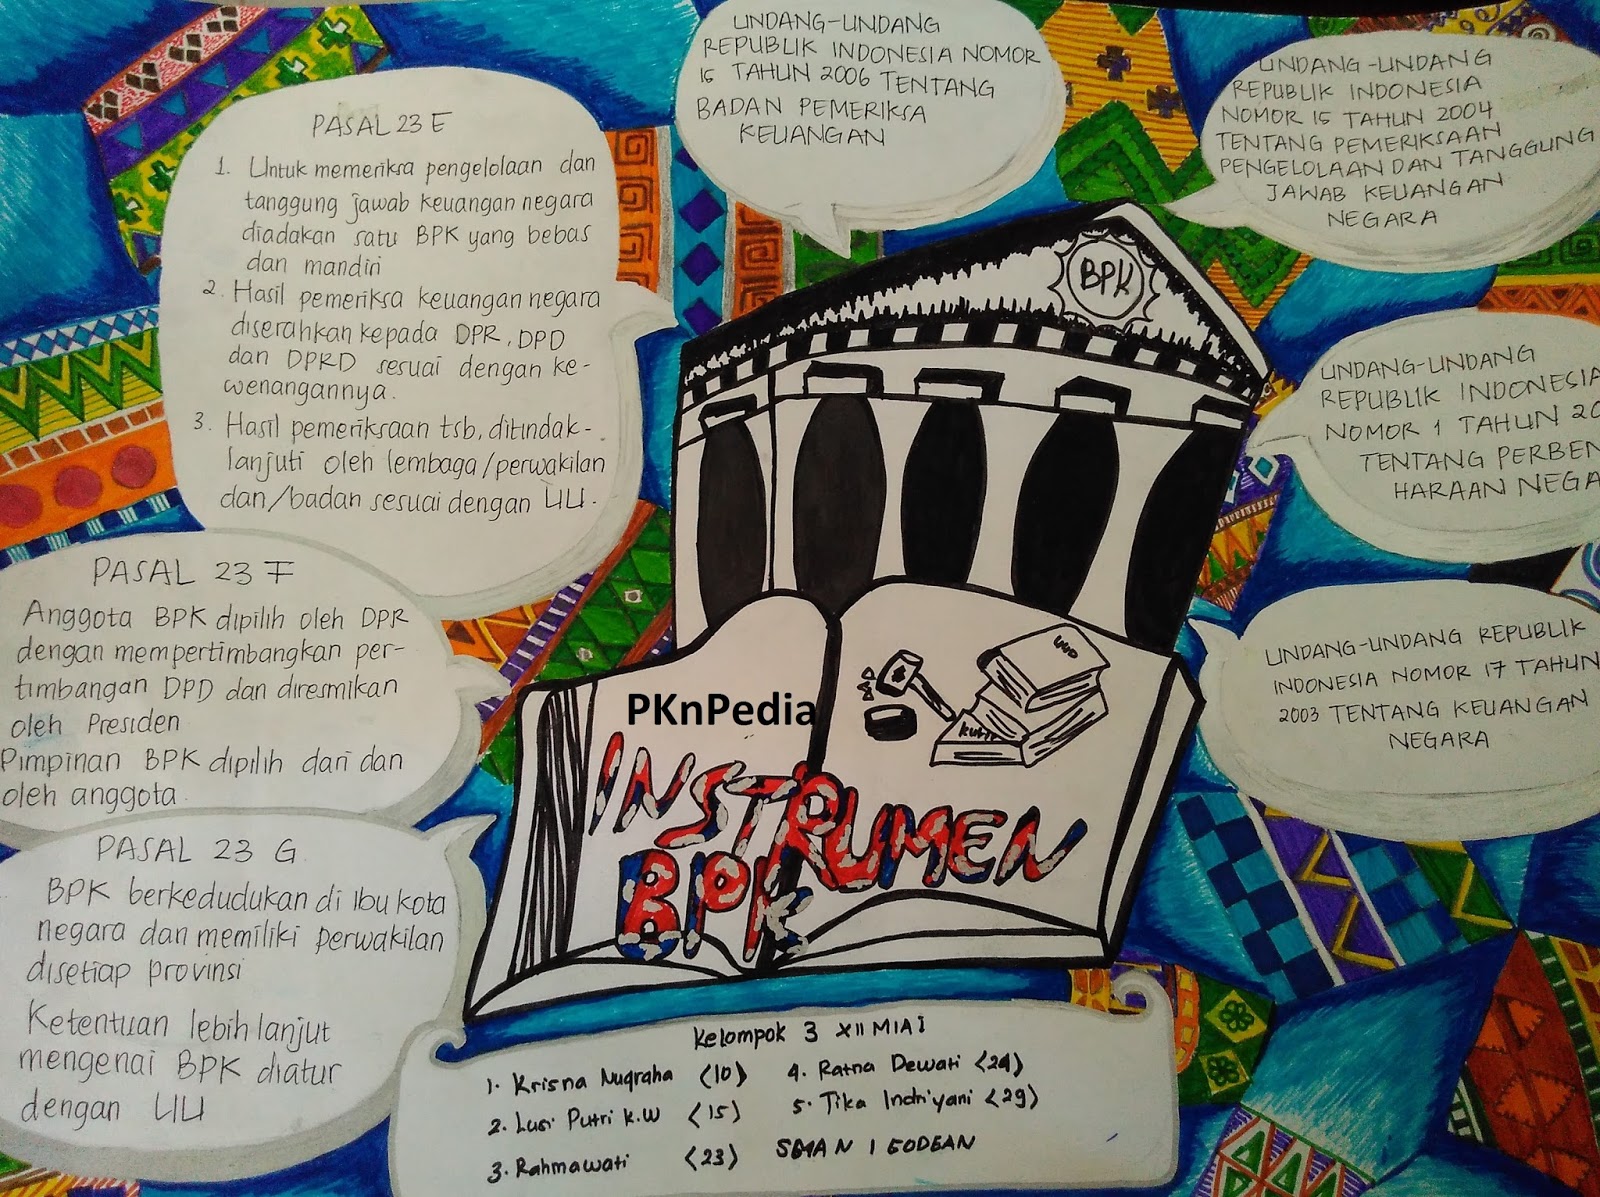 PASAL 23 E
1. Untuk memeriksa pengelolaan dan
tanggung jawab keuangan negara
diadakan satu BPK yang bebas
dan mandiri
2. Hasil pemeriksa keuangan negara
diserahkan kepada DPR, DPD
dan DPRD sesuai dengan ke-
wenangannya.
3. Hasil pemeriksaan tsb, ditindak-
lanjuti oleh lembaga/perwakilan
dan/badan sesuai dengan UU.
PASAL 23 F
Anggota BPK dipilih oleh DPR
dengan mempertimbangkan per-
timbangan DPD dan diresmikan
oleh Presiden
Pimpinan BPK dipilih dari dan
oleh anggota
PASAL 23 G
BPK berkedudukan di Ibu kota
negara dan memiliki perwakilan
disetiap provinsi
Ketentuan lebih lanjut
mengenai BPK diatur
dengan UU
UNDANG-UNDANG
REPUBLIK INDONESIA NOMOR
15 TAHUN 2006 TENTANG
BADAN PEMERIKSA
KEUANGAN
UNDANG-UNDANG
REPUBLIK INDONESIA
NOMOR 15 TAHUN 2004
TENTANG PEMERIKSAAN
PENGELOLAAN DAN TANGGUNG
JAWAB KEUANGAN
NEGARA
UNDANG-UNDANG
REPUBLIK INDONESIA
NOMOR 1 TAHUN 20
TENTANG PERBEN
HARAAN NEGA
UNDANG-UNDANG REPUBLIK
INDONESIA NOMOR 17 TAHUN
2003 TENTANG KEUANGAN
NEGARA
BPK
UUD
PKnPedia
INSTRUMEN
BPK
Kelompok 3 XII MIA I
1. Krisna Nugraha (10)
2. Lusi Putri K.W (15)
3. Rahmawati (23)
4. Ratna Dewati (24)
5. Tika Indriyani (29)
SMAN 1 GODEAN